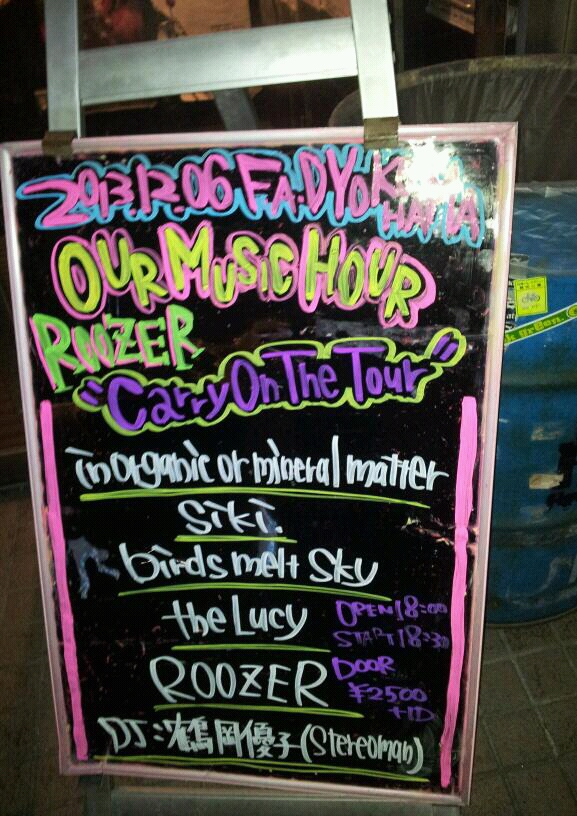 2013.12.06 F.A.D YOKOHAMA
OUR MUSIC HOUR
ROOZER
"Carry On The Tour"
inorganic or mineral matter
siki.
birds melt sky
the Lucy
OPEN 18:00
START 18:30
ROOZER
DOOR
¥2500
+1D
DJ:鶴岡優子(Stereoman)
green